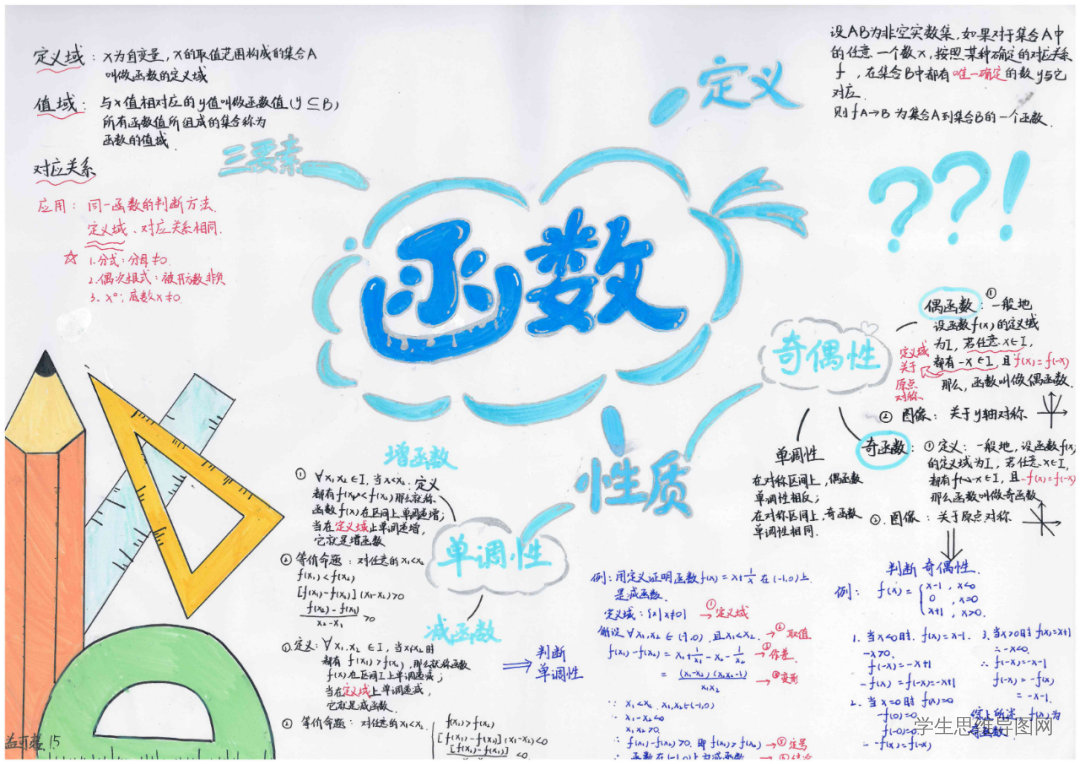 定义域：x为自变量，x的取值范围构成的集合A
叫做函数的定义域
值域：与x值相对应的y值叫做函数值(y⊆B)
所有函数值所组成的集合称为
函数的值域
对应关系
三要素
应用：同一函数的判断方法.
定义域、对应关系相同.
☆ 1.分式：分母≠0
2.偶次根式：被开方数非负
3、x⁰；底数x≠0
定义
设AB为非空实数集，如果对于集合A中
的任意一个数x，按照某种确定的对应关系
f，在集合B中都有唯一确定的数y与它
对应.
则f A→B 为集合A到集合B的一个函数.
？？！
函数
奇偶性
偶函数：①一般地
设函数f(x)的定义域
为I，若任意x∈I，
都有-x∈I，且f(x)=f(-x)
那么，函数叫做偶函数.
定义域
关于
原点
对称
② 图像：关于y轴对称
奇函数：①定义：一般地，设函数f(x)
的定义域为I，若任意x∈I，
都有-x∈I，且-f(x)=f(-x)
那么函数叫做奇函数
②图像：关于原点对称
单调性
在对称区间上，偶函数
单调性相反；
在对称区间上，奇函数
单调性相同.
性质
单调性
增函数
① ∀x₁x₂∈I，当x₁<x₂.定义
都有f(x₁)<f(x₂)那么就称.
函数f(x)在区间上单调递增；
当在定义域上单调递增，
它就是增函数
② 等价命题：对任意的x₁<x₂
f(x₁)<f(x₂)
[f(x₁)-f(x₂)](x₁-x₂)>0
f(x₂)-f(x₁)/x₂-x₁ >0
减函数
①.定义：∀x₁.x₂ ∈I，当x₁<x₂时
都有f(x₁)>f(x₂)，那么就称函数
f(x)在区间I上单调递减；
当在定义域上单调递减，
它就是减函数.
② 等价命题：对任意的x₁<x₂.
f(x₁)>f(x₂)
[f(x₁)-f(x₂)](x₁-x₂)<0
[f(x₁)-f(x₂)] <0
判断
单调性
例：用定义证明函数f(x)=x+1/x在(-1,0)上
是减函数.
定义域：{x|x≠0} ①→定义域
假设∀x₁x₂∈(-1,0).且x₁<x₂.→②取值
f(x₁)-f(x₂)=x₁+1/x₁-x₂-1/x₂ →③作差.
=(x₁-x₂)(x₁x₂-1)/x₁x₂ →④变形
∵ x₁<x₂. x₁x₂∈(-1,0)
∴ x₁-x₂<0
x₁x₂>0
∴ f(x₁)-f(x₂)>0. 即f(x₁)>f(x₂)→⑤定号
∴ 函数在(-1,0)上为减函数
判断 奇偶性.
例： f(x)={x-1，x<0
0 ，x=0
x+1，x>0.
1. 当x<0时. f(x)=x-1.
-x>0.
f(-x)=-x+1
-f(x)=f(-x)=-x+1
2. 当x=0时 f(x)=0
f(0)=0
f(-0)=0
∴-f(x)=f(-x)
3.当x>0时f(x)=x+1
∴-x<0.
∴ f(-x)=-x-1
f(-x)=-f(x)
=-x-1.
综上所述 f(x)为
奇函数
学生思维导图网
15